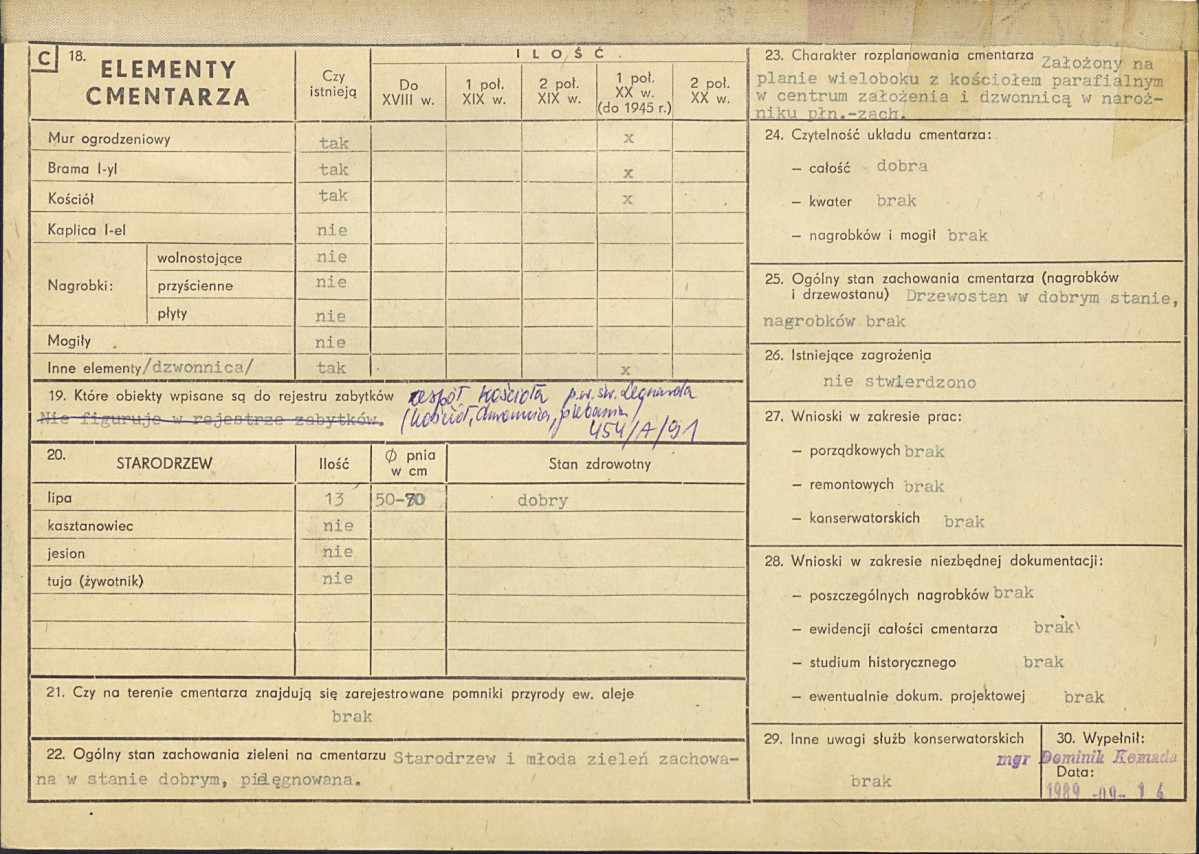 C 18. ELEMENTY CMENTARZA
Czy istnieją
I L O Ś Ć
Do XVIII w.
1 poł. XIX w.
2 poł. XIX w.
1 poł. XX w. (do 1945 r.)
2 poł. XX w.
Mur ogrodzeniowy tak x
Brama I-yl tak x
Kościół tak x
Kaplica I-el nie
Nagrobki:
wolnostojące nie
przyścienne nie
płyty nie
Mogiły nie
Inne elementy /dzwonnica/ tak x
19. Które obiekty wpisane są do rejestru zabytków zespół kościoła p.w. św. Leonarda
Nie figuruje w rejestrze zabytków. (kościół, dzwonnica, plebania)
454/A/91
20. STARODRZEW Ilość Ø pnia w cm Stan zdrowotny
lipa 13 50-70 dobry
kasztanowiec nie
jesion nie
tuja (żywotnik) nie
21. Czy na terenie cmentarza znajdują się zarejestrowane pomniki przyrody ew. aleje
brak
22. Ogólny stan zachowania zieleni na cmentarzu Starodrzew i młoda zieleń zachowa-
na w stanie dobrym, pielęgnowana.
23. Charakter rozplanowania cmentarza Założony na
planie wieloboku z kościołem parafialnym
w centrum założenia i dzwonnicą w naroż-
niku płn.-zach.
24. Czytelność układu cmentarza:
– całość dobra
– kwater brak
– nagrobków i mogił brak
25. Ogólny stan zachowania cmentarza (nagrobków
i drzewostanu) Drzewostan w dobrym stanie,
nagrobków brak
26. Istniejące zagrożenia
nie stwierdzono
27. Wnioski w zakresie prac:
– porządkowych brak
– remontowych brak
– konserwatorskich brak
28. Wnioski w zakresie niezbędnej dokumentacji:
– poszczególnych nagrobków brak
– ewidencji całości cmentarza brak
– studium historycznego brak
– ewentualnie dokum. projektowej brak
29. Inne uwagi służb konserwatorskich
brak
30. Wypełnił:
mgr Dominik Komada
Data:
1989 -09- 14